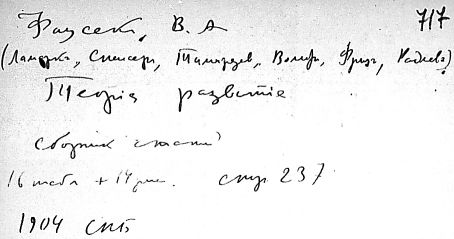 Фаусек, В. А 717
(Ламарк, Спенсер, Тимирязев, Вольф, Фриз, Радлов)
Теория развития
сборник статей
16 табл + 14 рис. стр 237
1904 СПБ